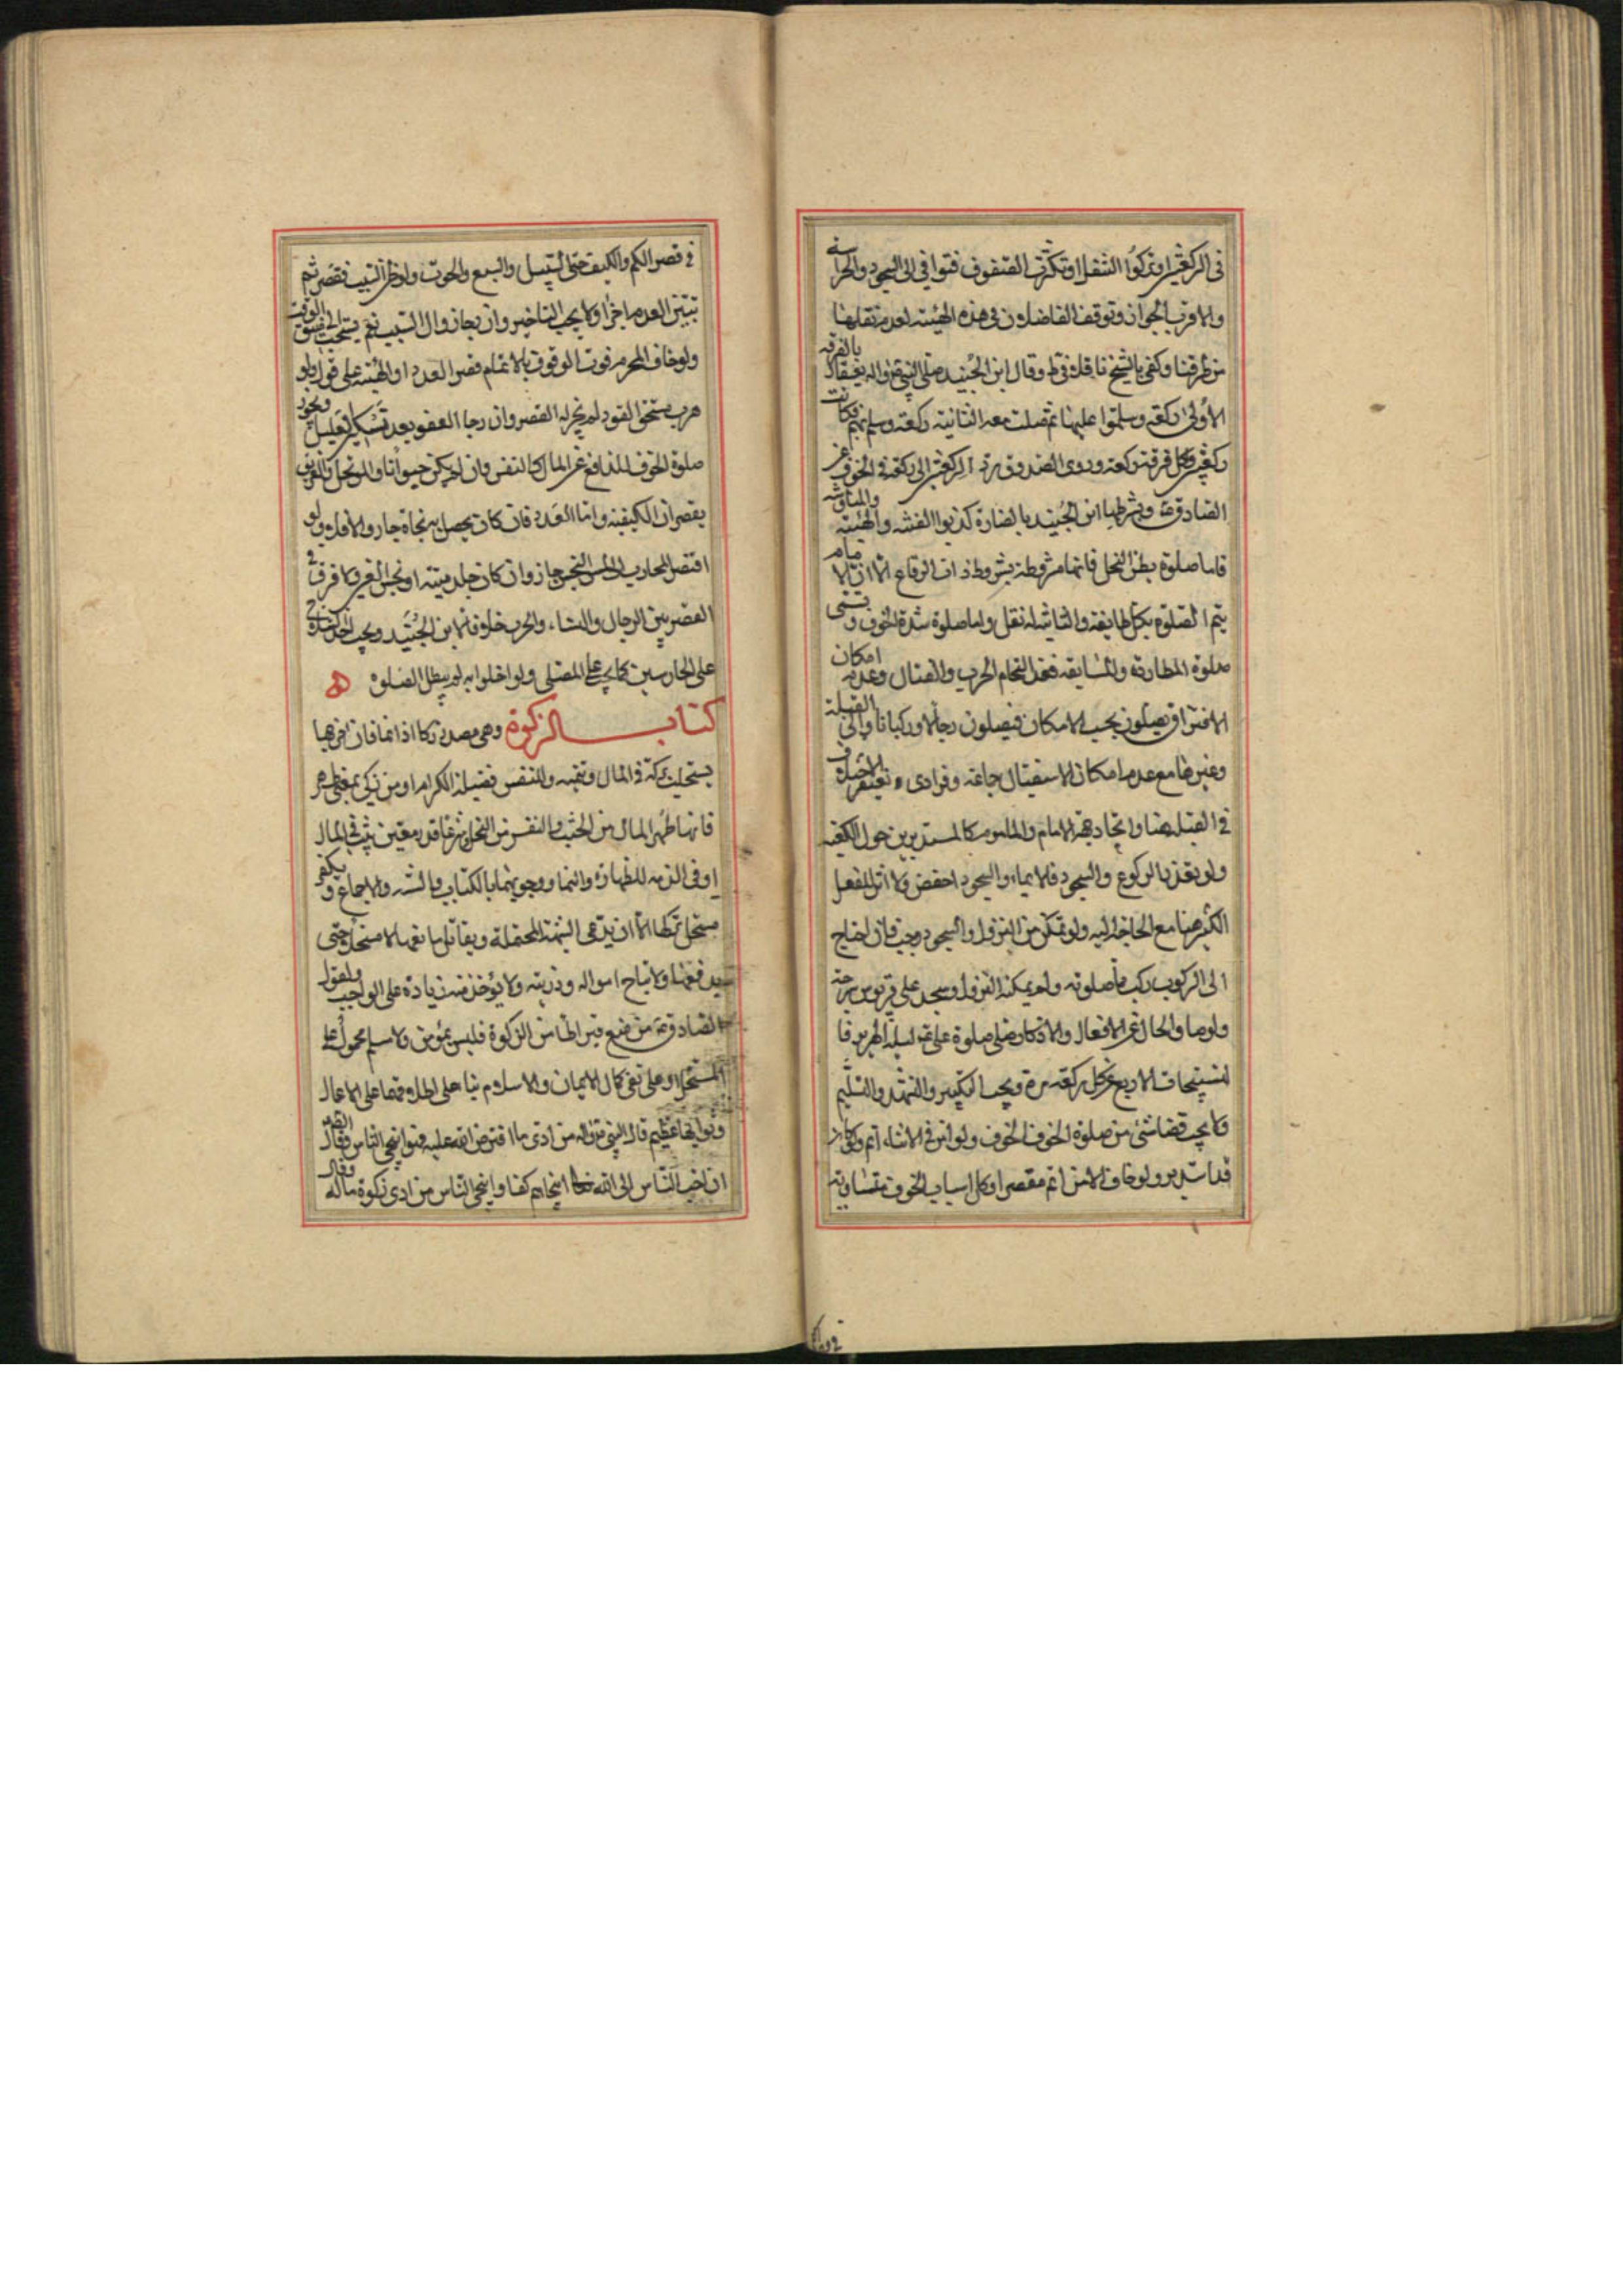 في الركعتين او تركوا التنقل او تكثرت الصفوف فتوافي الى السجود والحراسة
والاقرب الجواز وتوقف الفاضلان في هذه الهيئة لعدم نقلها
من طرقنا وكفى بالشيخ ناقلا في ط وقال ابن الجنيد صلى النبي ص واله بعسفان بالفرقة
الاولى ركعة وسلموا عليها ثم صلت معه الثانية ركعة وسلم بهم فكانت
ركعتين وكل فرقة ركعة وروى الصدوق الركعتين الى ركعة في الخوف عن
الصادق ع وشرطها ابن الجنيد والهيئة
فاما صلوة بطن النخل فانها مشروطة بشروط ذات الرقاع الا ان الامام
يتم الصلوة بكل طايفة والثانية له نفل واما صلوة شدة الخوف وتسمى
صلوة المطاردة والمسايفة فعند التحام الحرب والقتال وعدم امكان
الافتراق يصلون بحسب الامكان فيصلون رجالا وركبانا والى القبلة
وغيرها مع عدم امكان الاستقبال جماعة وفرادى ويغتفر الاختلاف
في القبلة هنا واتحاد جهة الامام والماموم كالمستديرين حول الكعبة
ولو تعذر الركوع والسجود فالايماء والسجود اخفض ولا اثر للفعل
الكثير هنا مع الحاجة اليه ولو تمكن من النزول والسجود وجب فان احتاج
الى الركوب ركب واتم صلوته ولو لم يمكنه النزول وسجد على قربوس سرجه
ولو صار الحال عن الافعال والاذكار صلى صلوة على ع ليلة الهرير فا
لتسبيحات الاربع عن كل ركعة مرة ويجب التكبير والتشهد والتسليم
ولا يجب قضا شئ من صلوة الخوف الخوف ولو امن في الاثناء اتم ولو كان
قد استدبر ولو خاف الامن اتم مقصرا وكل اسباب الخوف متساوية
في قصر الكم والكيف حتى السيل والسبع والحرق ولو ظن السبب فقصر ثم
تبين العدم اجزا ولا يجب التاخير وان رجا زوال السبب نعم يستحب الى ضيق الوقت
ولو خاف المحرم فوت الوقوف بالاتمام قصر العدد او الهيئة على قول ولو
هرب مستحق القود لم يجز له القصر وان رجا العفو بعد تسكين الغليل ويجوز
صلوة الخوف للمدافع عن المال كالنفس وان لم يكن حيوانا والموتحل والغريق
يقصران الكيفية واما العدد فان كان يحصل به نجاة جاز والا فلا ولو
افتقر المحارب الى لبس النجس جاز وان كان جلد ميتة او نجس العين ولا فرق في
القصر بين الرجال والنساء والحرب خلافا لابن الجنيد ويجب اخذ السلاح
على الحارسين كما يجب على المصلي ولو اخلوا به لم يبطل الصلوة
كتاب الزكوة وهي مصدر زكا اذا نما فان اخراجها
يستجلب بركة في المال وتنميه وللنفس فضيلة الكرم او من زكى بمعنى طهر
فانها تطهر المال من الخبث والنفس من البخل وشرعا قدر معين يثبت في المال
او في الذمة للطهارة والنما ووجوبها بالكتاب والسنة والاجماع ويكفر
مستحل تركها الا ان يدعي الشبهة المحتملة ويقاتل مانعها لا مستحلا حتى
يدفعها ولا تباح امواله وذريته ولا يؤخذ منه زيادة على الواجب ولقول
الصادق ع من منع قيراطا من الزكوة فليس بمؤمن ولا مسلم محمول على
المستحل او على نفي كمال الايمان والاسلام
وثوابها عظيم قال النبي ص واله من ادى ما افترض الله عليه فهو اسخى الناس وقال الصادق
ان احب الناس الى الله اسخاهم كفا واسخى الناس من ادى زكوة ماله وقال